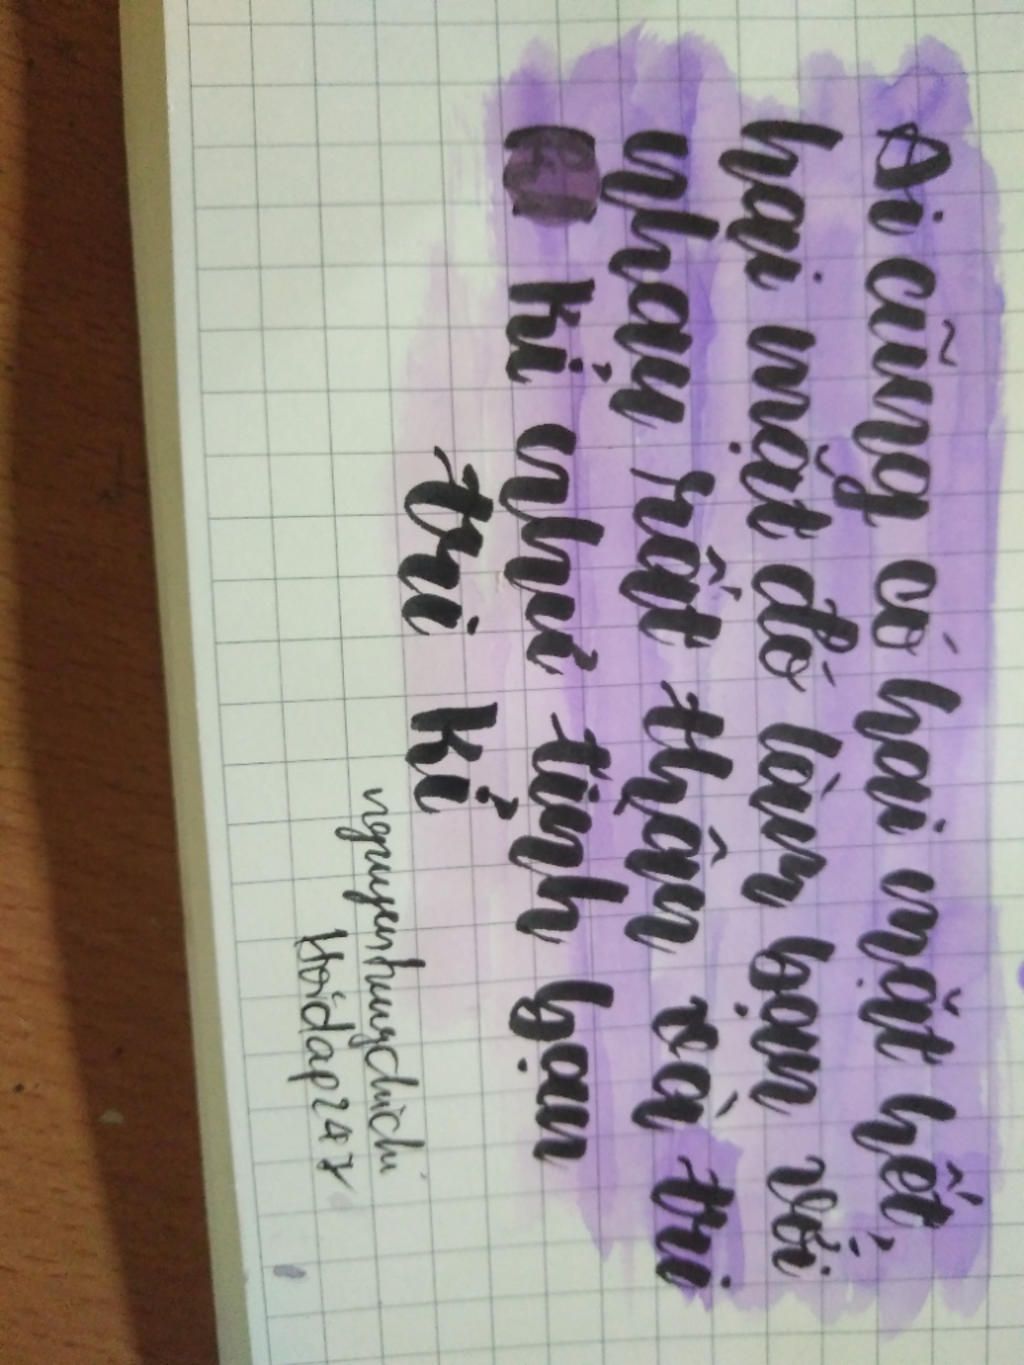 Ai cũng có hai mặt hết,
hai mặt đó làm bạn với
nhau rất thân và tri
kỉ như tình bạn
tri kỉ
nguyenhungchichi
Hoidap247